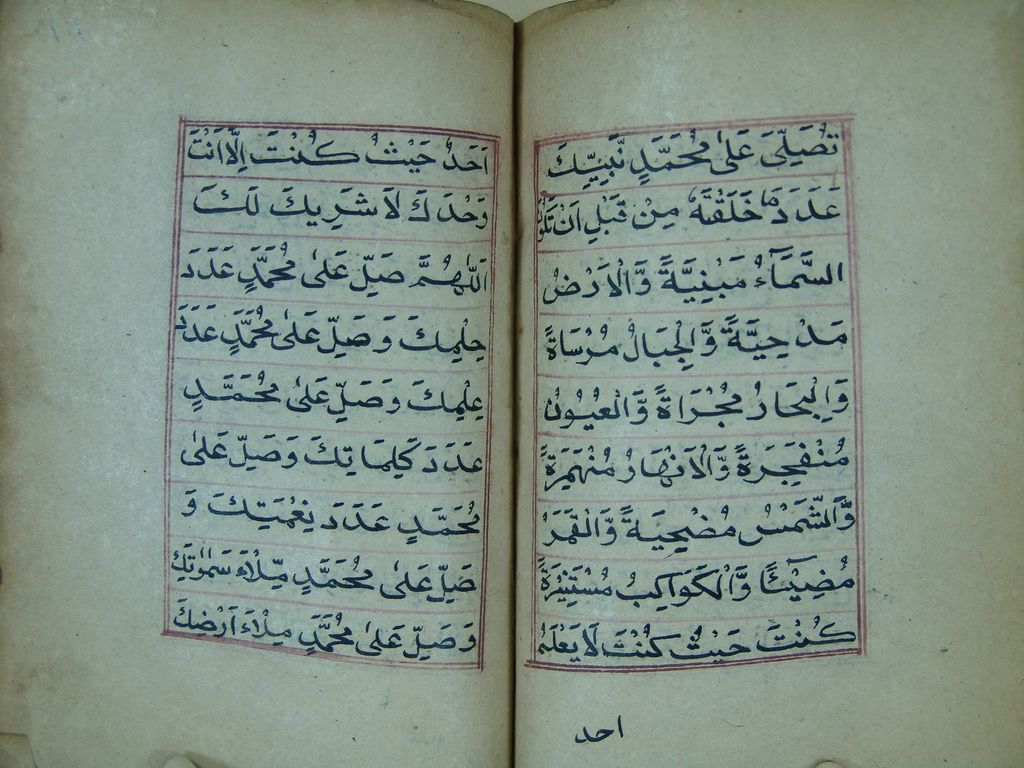 تُصَلِّیَ عَلٰی مُحَمَّدٍ نَّبِیِّكَ
عَدَدَ مَا خَلَقْتَهٗ مِنْ قَبْلِ اَنْ تَكُوْنَ
السَّمَآءُ مَبْنِیَّةً وَّالْاَرْضُ
مَدْحِیَّةً وَّالْجِبَالُ مُرْسَاةً
وَالْبِحَارُ مُجْرَاةً وَّالْعُیُوْنُ
مُنْفَجِرَةً وَّالْاَنْهَارُ مُنْهَمِرَةً
وَّالشَّمْسُ مُضْحِیَةً وَّالْقَمَرُ
مُضِیْئًا وَّالْكَوَاكِبُ مُسْتَنِیْرَةً
كُنْتَ حَیْثُ كُنْتَ لَا یَعْلَمُ
احد
اَحَدٌ حَیْثُ كُنْتَ اِلَّا اَنْتَ
وَحْدَكَ لَا شَرِیْكَ لَكَ
اَللّٰهُمَّ صَلِّ عَلٰی مُحَمَّدٍ عَدَدَ
حِلْمِكَ وَصَلِّ عَلٰی مُحَمَّدٍ عَدَدَ
عِلْمِكَ وَصَلِّ عَلٰی مُحَمَّدٍ
عَدَدَ كَلِمَاتِكَ وَصَلِّ عَلٰی
مُحَمَّدٍ عَدَدَ نِعْمَتِكَ وَ
صَلِّ عَلٰی مُحَمَّدٍ مِّلْاَءَ سَمٰوٰتِكَ
وَصَلِّ عَلٰی مُحَمَّدٍ مِلْاَءَ اَرْضِكَ